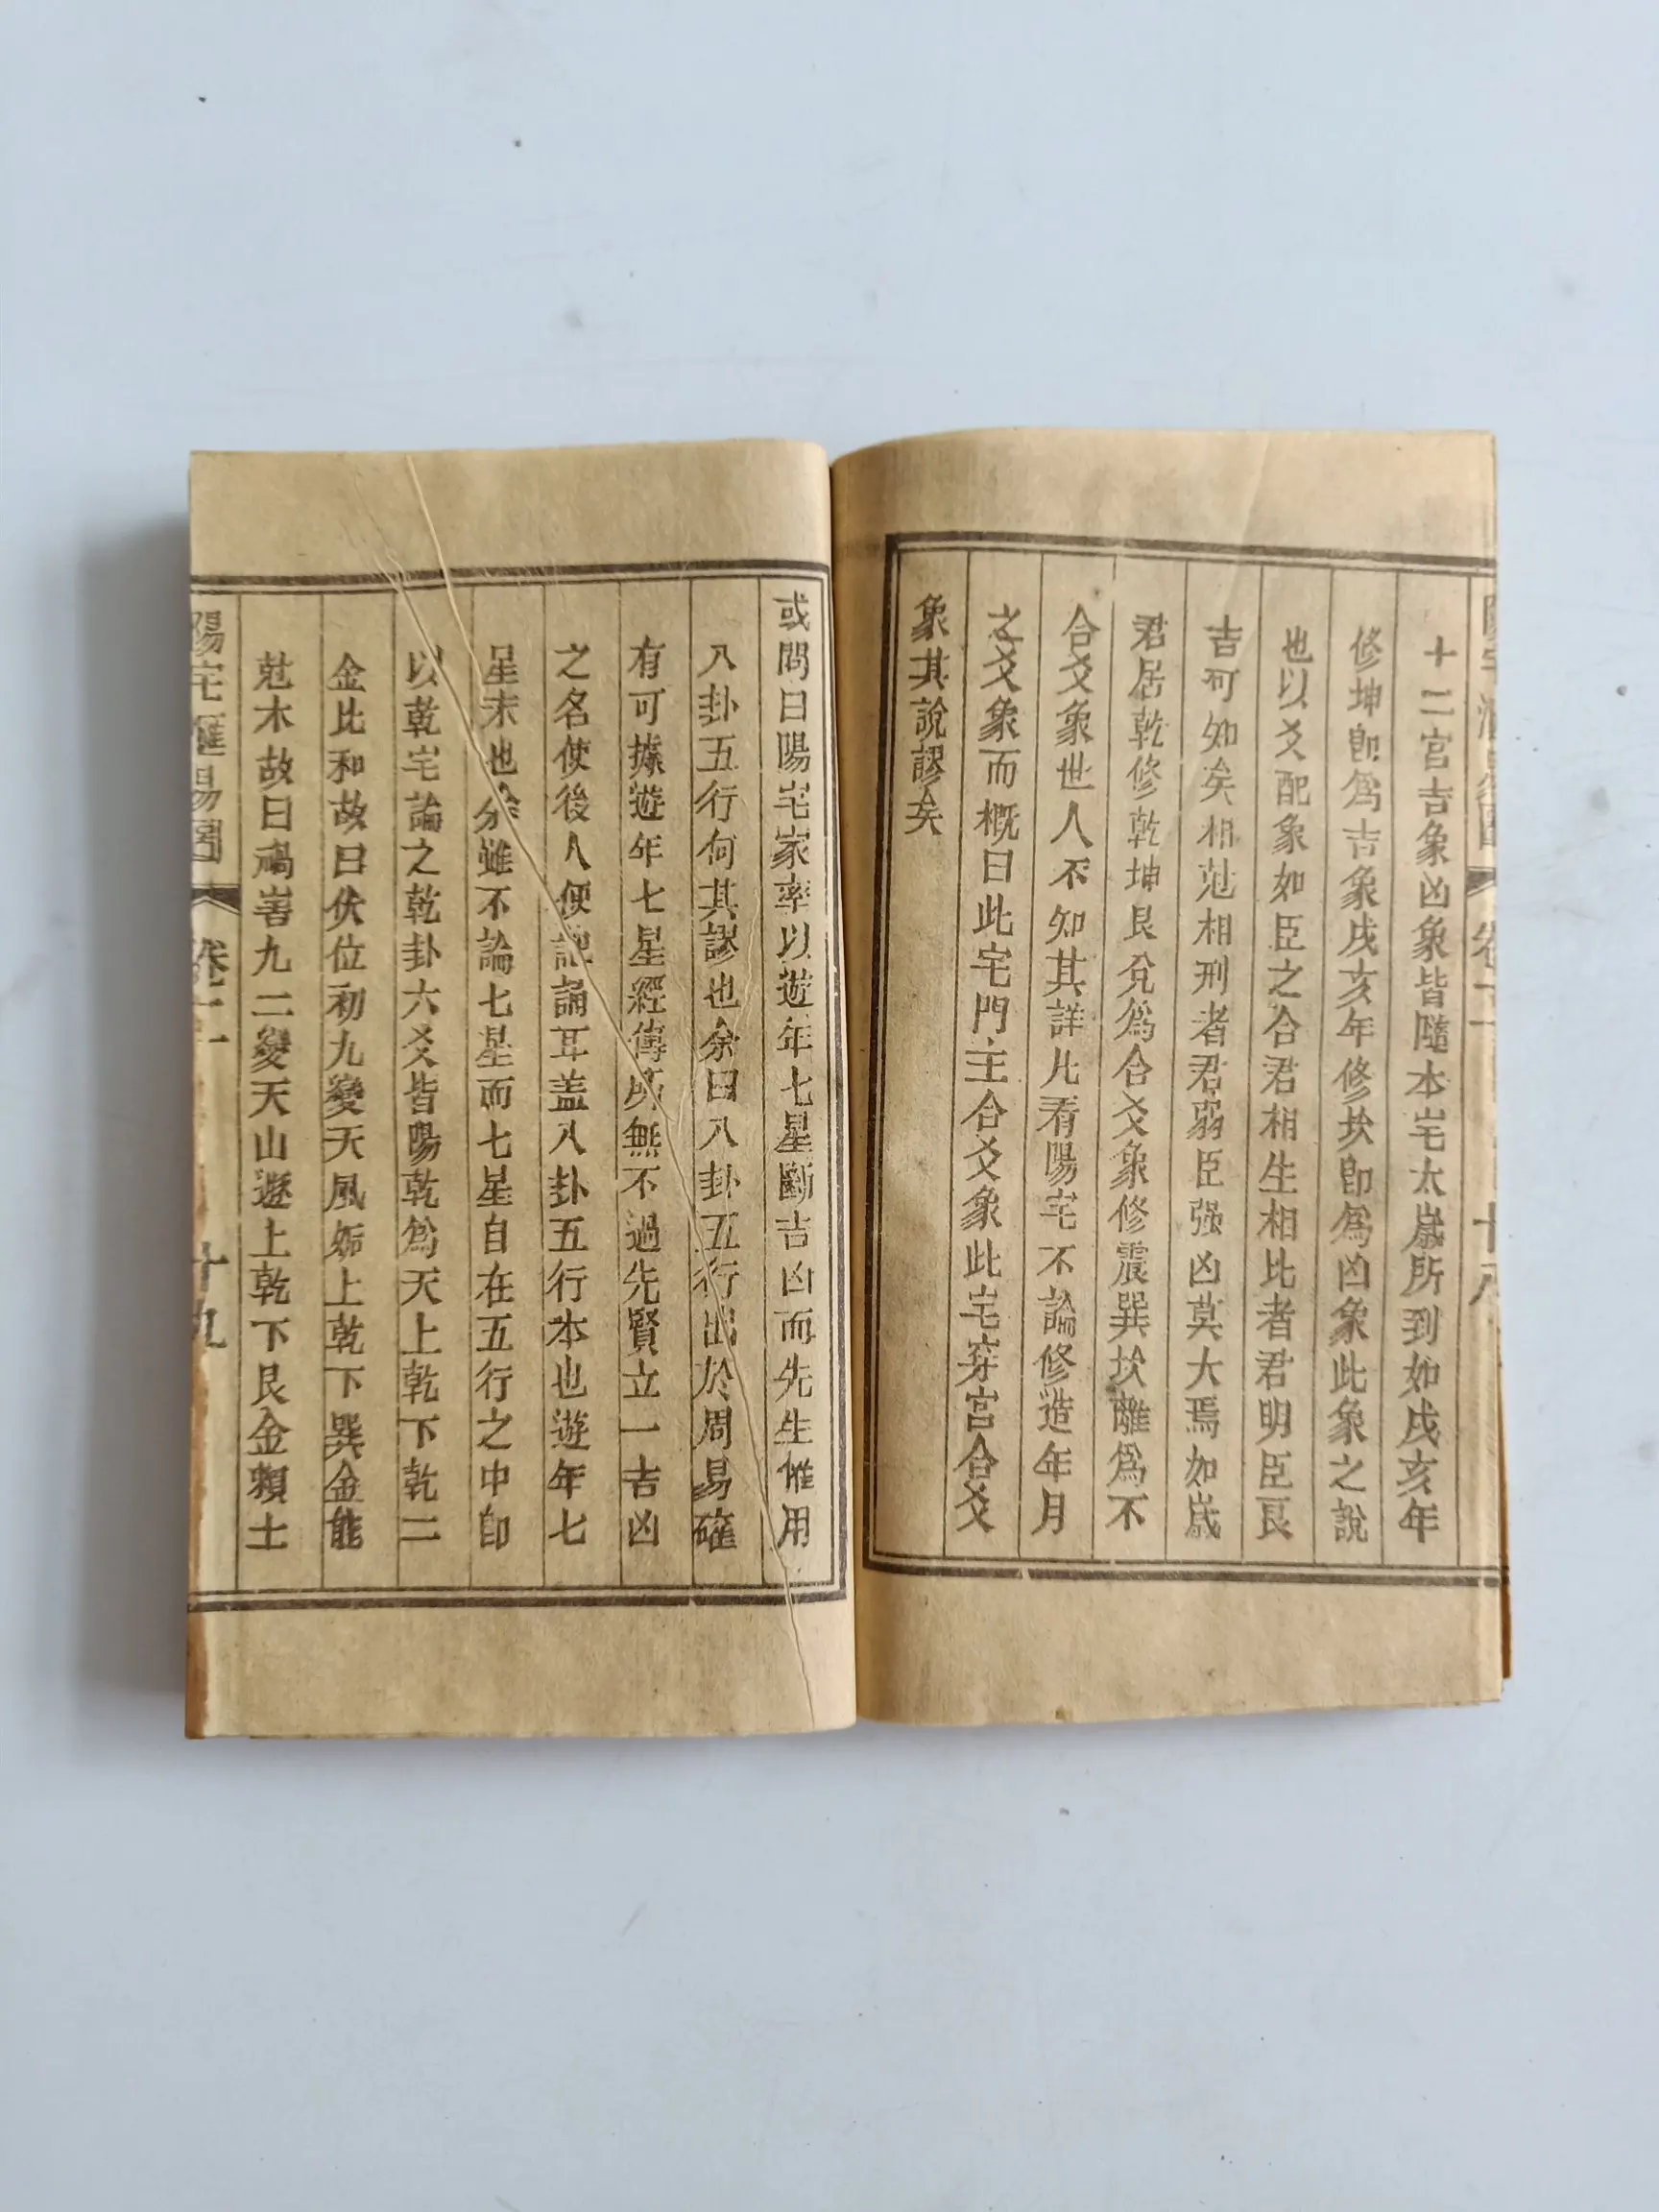 十二宮吉象凶象皆隨本宅太歲所到如戌亥年
修坤卽爲吉象戌亥年修坎卽爲凶象此象之說
也以爻配象如臣之合君相生相比者君明臣良
吉可知矣相尅相刑者君弱臣强凶莫大焉如歲
君居乾修乾坤艮兌爲合爻象修震巽坎離爲不
合爻象世人不知其詳凡看陽宅不論修造年月
之爻象而概曰此宅門主合爻象此宅穿宮合爻
象其說謬矣
或問曰陽宅家率以遊年七星斷吉凶而先生惟用
八卦五行何其謬也余曰八卦五行出於周易確
有可據遊年七星經傳所無不過先賢立一吉凶
之名使後人便記誦耳盖八卦五行本也遊年七
星末也余雖不論七星而七星自在五行之中卽
以乾宅論之乾卦六爻皆陽乾爲天上乾下乾二
金比和故曰伏位初九變天風姤上乾下巽金能
尅木故曰禍害九二變天山遯上乾下艮金賴土
陽宅 易圖
十九